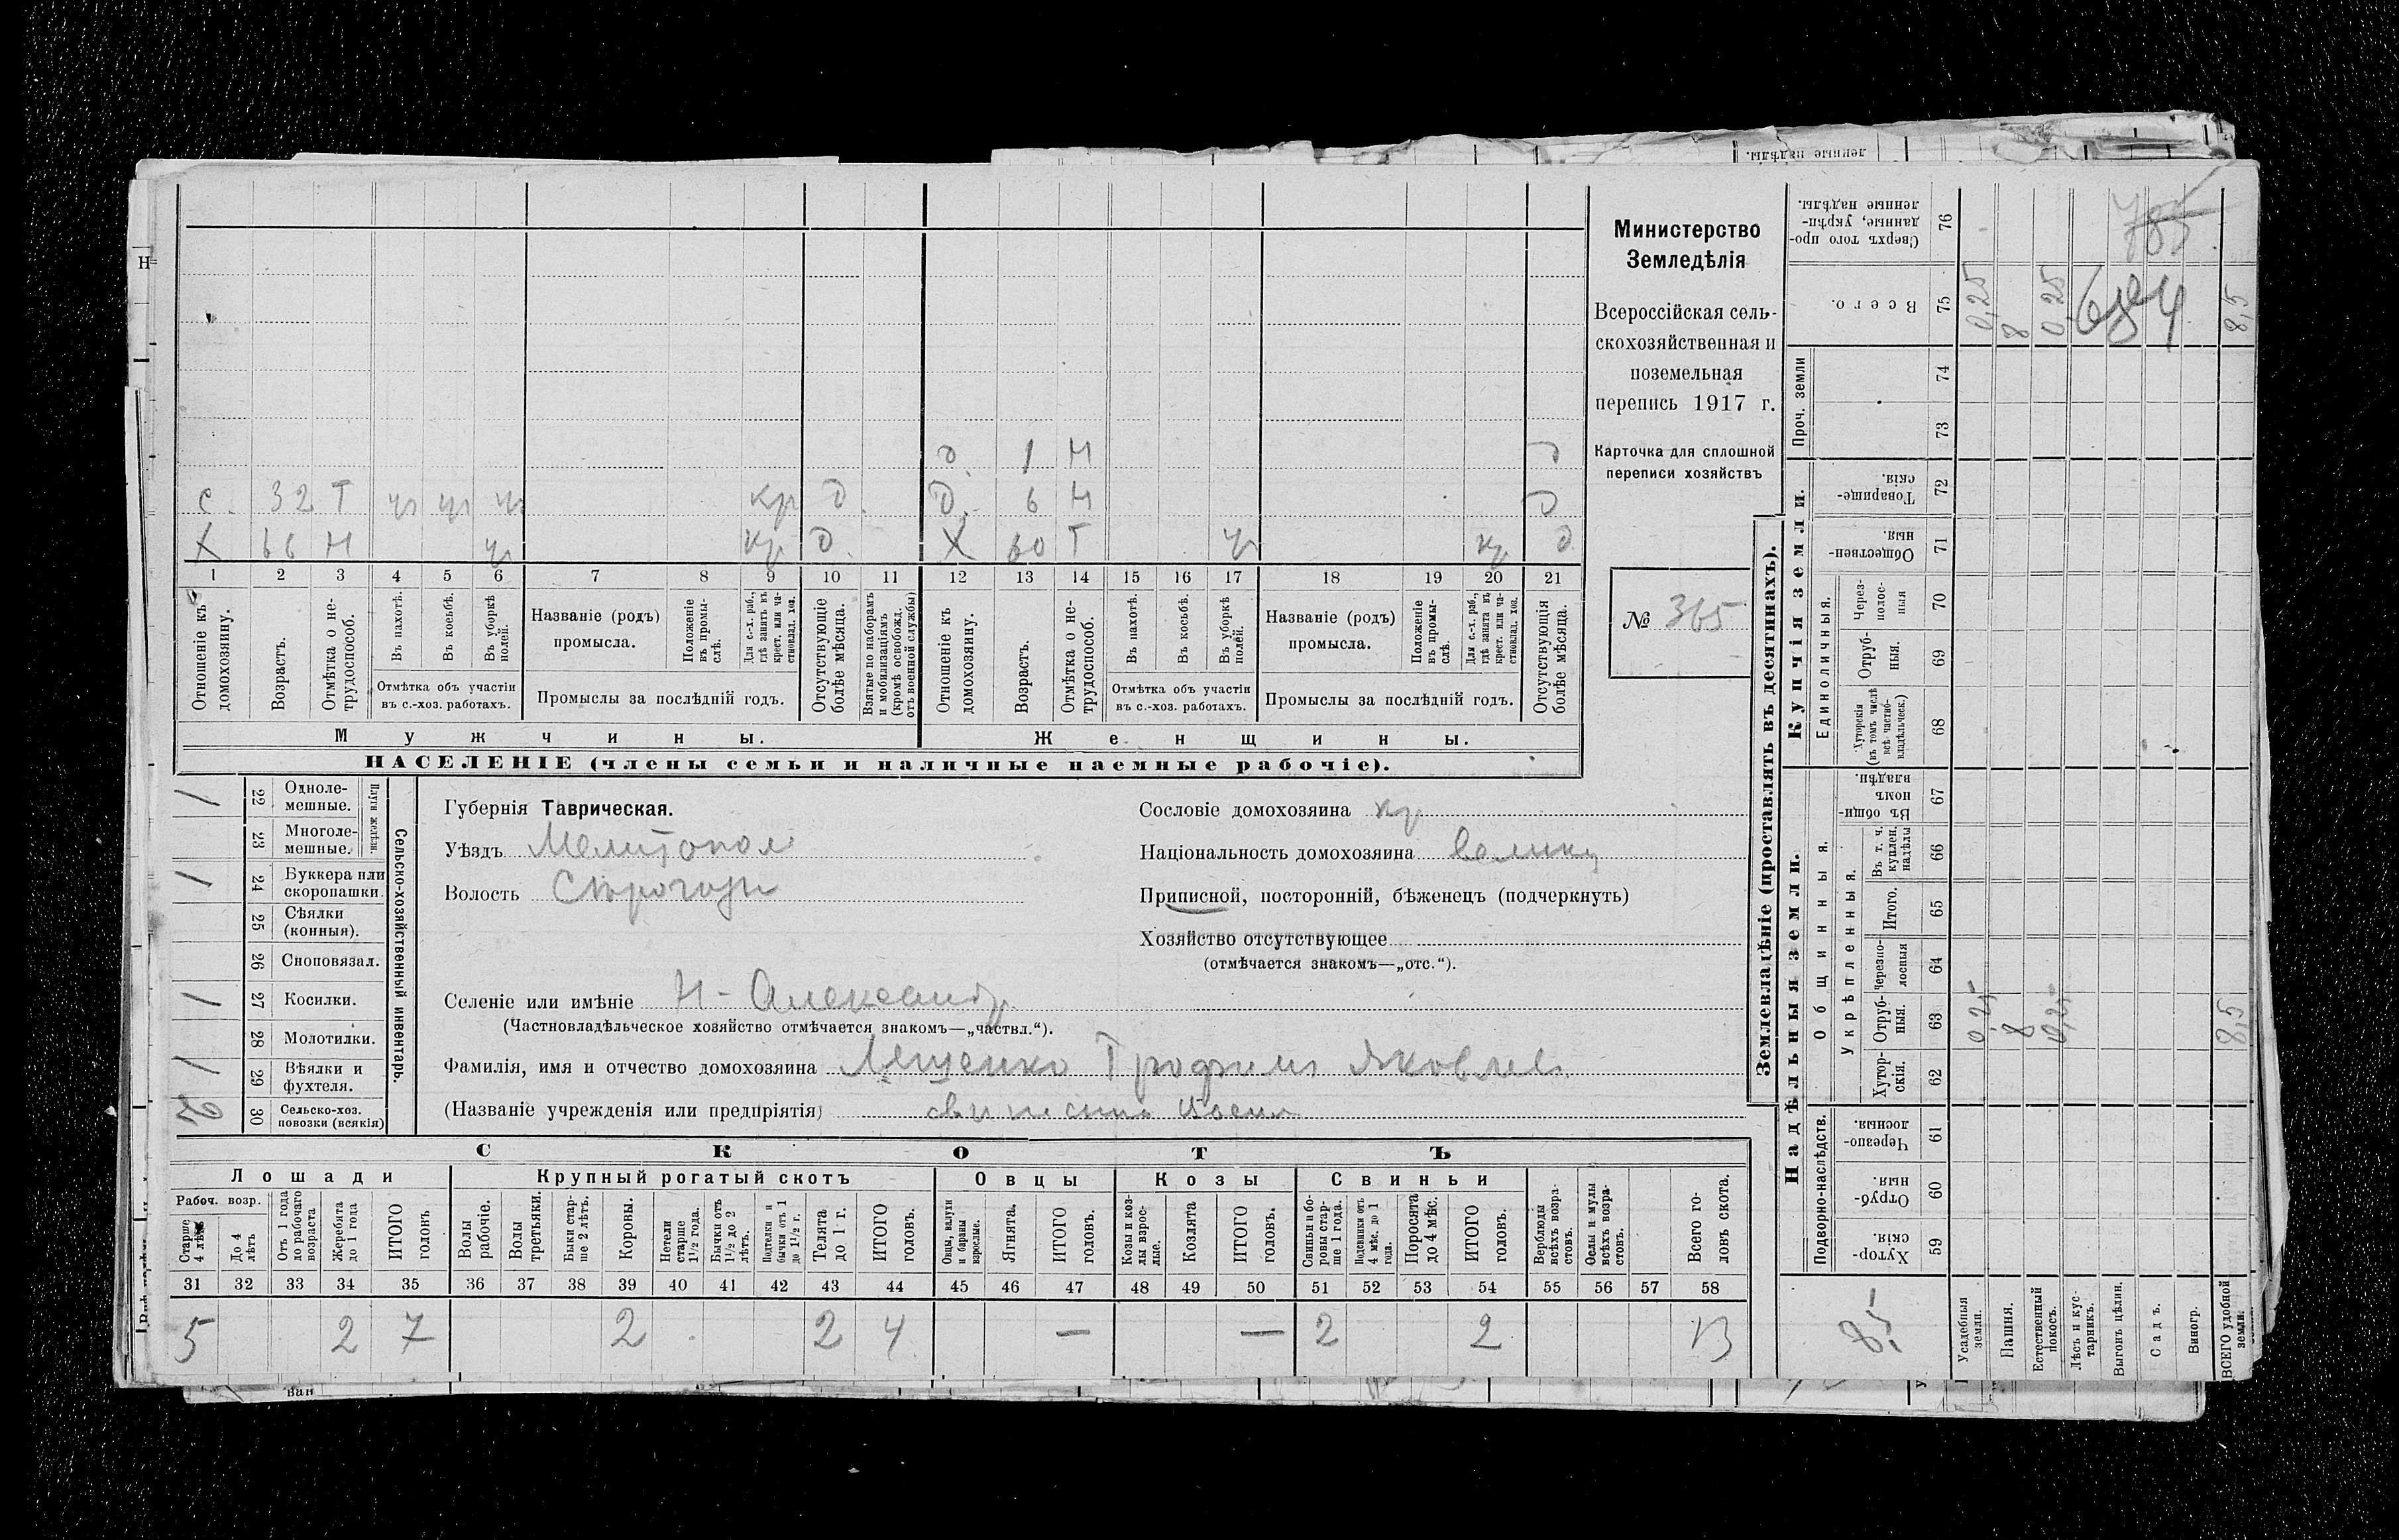 д. 1 Н д
с. 32 Т уч уч уч кр д. д. 6 Н д
Х 66 Н уч кр д. Х 60 Т уч кр д
1 2 3 4 5 6 7 8 9 10 11 12 13 14 15 16 17 18 19 20 21
Отношеніе къ домохозяину.
Возрастъ.
Отмѣтка о не-трудоспособ.
Въ пахотѣ.
Въ косьбѣ.
Въ уборкѣ полей.
Отмѣтка объ участіи
въ с.-хоз. работахъ.
Названіе (родъ)
промысла.
Положеніе въ промы-слѣ.
Для с.-х. раб., гдѣ занятъ въ крест. или ча-стновлад. хоз.
Промыслы за послѣдній годъ.
Отсутствующіе болѣе мѣсяца.
Взятые по наборамъ и мобилизаціямъ (кромѣ освобожд. отъ военной службы)
Отношеніе къ домохозяину.
Возрастъ.
Отмѣтка о не-трудоспособ.
Въ пахотѣ.
Въ косьбѣ.
Въ уборкѣ полей.
Отмѣтка объ участіи
въ с.-хоз. работахъ.
Названіе (родъ)
промысла.
Положеніе въ промы-слѣ.
Для с.-х. раб., гдѣ занята въ крест. или ча-стновлад. хоз.
Промыслы за послѣдній годъ.
Отсутствующія болѣе мѣсяца.
Мужчины.
Женщины.
НАСЕЛЕНІЕ (члены семьи и наличные наемные рабочіе).
Министерство
Земледѣлія
Всероссійская сель-
скохозяйственная и
поземельная
перепись 1917 г.
Карточка для сплошной
переписи хозяйствъ
№ 365
Сельско-хозяйственный инвентарь.
Плуги желѣзн.
1 22 Однолe-мешные.
23 Многоле-мешные.
1 24 Буккера или скоропашки.
25 Сѣялки (конныя).
26 Сноповязал.
1 27 Косилки.
28 Молотилки.
1 29 Вѣялки и фухтеля.
2 30 Сельско-хоз. повозки (всякія)
Губернія Таврическая.
Уѣздъ Мелитопол
Волость Сѣрогозы
Селеніе или имѣніе Н-Александр
(Частновладѣльческое хозяйство отмѣчается знакомъ—„частвл.“).
Фамилія, имя и отчество домохозяина Лященко Трофимъ Яковлев
(Названіе учрежденія или предпріятія)
Сословіе домохозяина кр
Національность домохозяина велики
Приписной, посторонній, бѣженецъ (подчеркнуть)
Хозяйство отсутствующее
(отмѣчается знакомъ—„отс.“).
СКОТЪ
Лошади
Крупный рогатый скотъ
Овцы
Козы
Свиньи
Рабоч. возр.
Старше 4 лѣтъ
До 4 лѣтъ
Отъ 1 года до рабочаго возраста
Жеребята до 1 года
ИТОГО головъ
Волы рабочіе.
Волы третьяки.
Быки стар-ше 2 лѣтъ.
Коровы.
Нетели старше 1½ года.
Бычки отъ 1½ до 2 лѣтъ.
Подтелки и бычки отъ 1 до 1½ г.
Телята до 1 г.
ИТОГО головъ.
Овцы, валухи и бараны взрослые.
Ягнята.
ИТОГО головъ.
Козы и коз-лы взрос-лые.
Козлята
ИТОГО головъ.
Свиньи и бо-ровы стар-ше 1 года.
Подсвинки отъ 4 мѣс. до 1 года.
Поросята до 4 мѣс.
ИТОГО головъ.
Верблюды всѣхъ возра-стовъ.
Ослы и мулы всѣхъ возра-стовъ.
Всего го-ловъ скота.
31 32 33 34 35 36 37 38 39 40 41 42 43 44 45 46 47 48 49 50 51 52 53 54 55 56 57 58
5 2 7 2 2 4 — — 2 2 13
Землевладѣніе (проставлять въ десятинахъ).
Надѣльныя земли.
Купчія земли.
Проч. земли
Подворно-наслѣдств.
Общинныя.
Укрѣпленныя.
Единоличныя.
Хутор-скія. 59
Отруб-ныя. 60
Черезпо-лосныя. 61
Хутор-скія. 62
Отруб-ныя. 63
черезпо-лосныя 64
Итого. 65
Въ т. ч. куплен. надѣлы 66
Въ общи-номъ владѣн. 67
Хуторскія (въ томъ числѣ всѣ частно-владѣльческ.) 68
Отруб-ныя. 69
Через-полос-ныя 70
Обществен-ныя. 71
Товарище-скія. 72
73
74
Всего. 75
Сверхъ того про-данные, укрѣп-ленные надѣлы. 76
Усадебныя земли. 0,25 0,25
Пашня. 8 8
Естественный покосъ. 0,25 0,25
Лѣсъ и кус-тарникъ.
Выгонъ цѣлин.
Садъ.
Виногр.
ВСЕГО удобной земли. 8,5 8,5
8,5
684
785
ленные надѣлы.